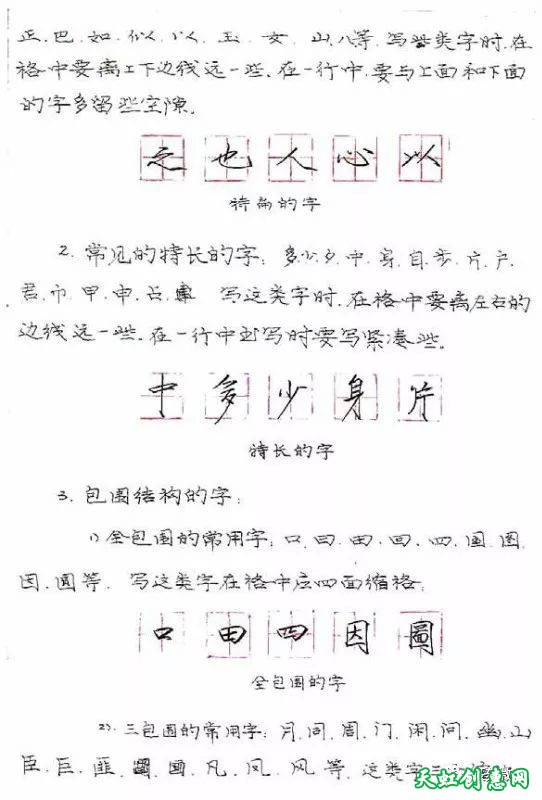 正.巴.如.似.以.玉.女.山.八等.写些类字时.在
格中要离上下边线远一些.在一行中.要与上面和下面
的字多留些空隙.
之 也 人 心 以
特扁的字
2. 常见的特长的字: 多.少.夕.中.身.自.步.片.户.
君.巾.甲.申.占. 写这类字时.在格中要离左右的
边线远一些.在一行中书写时要写紧凑些.
中 多 少 身 片
特长的字
3. 包围结构的字:
1) 全包围的常用字: 口.曰.田.回.四.国.图.
因.圆等. 写这类字在格中应四面缩格.
口 田 四 因 圖
全包围的字
2). 三包围的常用字: 月.同.周.门.闲.问.幽.山
臣.巨.匪.凡.凤.风.等.这类字三
天虹创意网